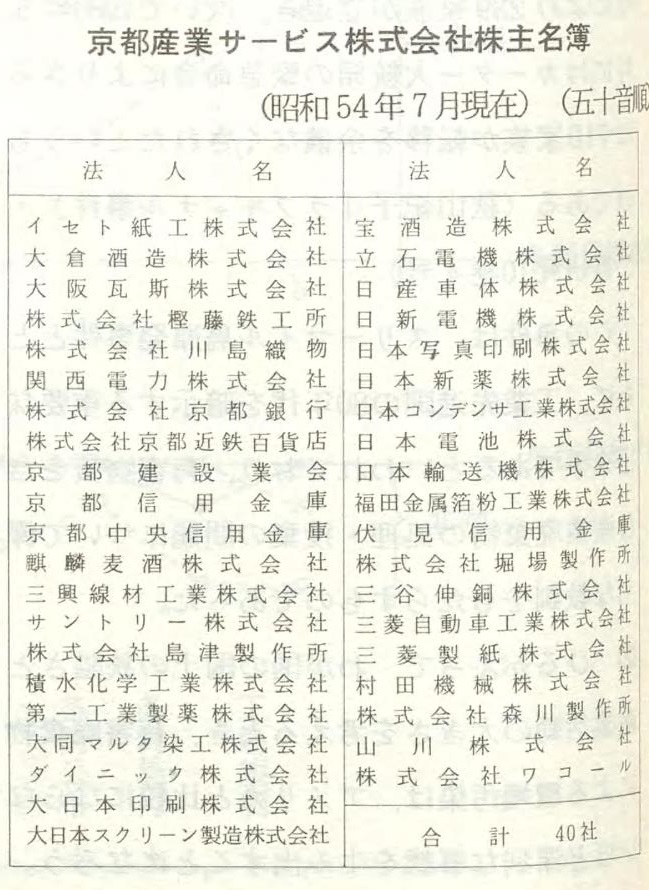 京都産業サービス株式会社株主名簿
(昭和54年7月現在) (五十音順)
法人名
イセト紙工株式会社
大倉酒造株式会社
大阪瓦斯株式会社
株式会社樫藤鉄工所
株式会社川島織物
関西電力株式会社
株式会社京都銀行
株式会社京都近鉄百貨店
京都建設業会
京都信用金庫
京都中央信用金庫
麒麟麦酒株式会社
三興線材工業株式会社
サントリー株式会社
株式会社島津製作所
積水化学工業株式会社
第一工業製薬株式会社
大同マルタ染工株式会社
ダイニック株式会社
大日本印刷株式会社
大日本スクリーン製造株式会社
法人名
宝酒造株式会社
立石電機株式会社
日産車体株式会社
日新電機株式会社
日本写真印刷株式会社
日本新薬株式会社
日本コンデンサ工業株式会社
日本電池株式会社
日本輸送機株式会社
福田金属箔粉工業株式会社
伏見信用金庫
株式会社堀場製作所
三谷伸銅株式会社
三菱自動車工業株式会社
三菱製紙株式会社
村田機械株式会社
株式会社森川製作所
山川株式会社
株式会社ワコール
合計 40社